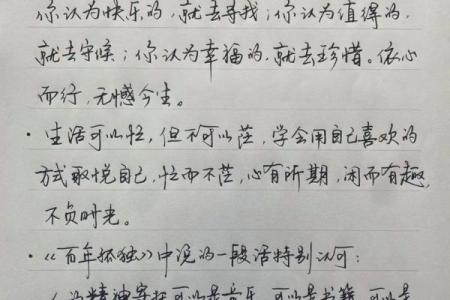 你认为快乐的，就去寻找；你认为值得的，
就去守候；你认为幸福的，就去珍惜。依心
而行，无憾今生。
· 生活可以忙，但不可以茫，学会用自己喜欢的
方式取悦自己，忙而不茫，心有所期，闲而有趣，
不负时光。
· 《百年孤独》中说的一段话特别认可：
人的精神寄托可以是音乐，可以是书籍，可以是